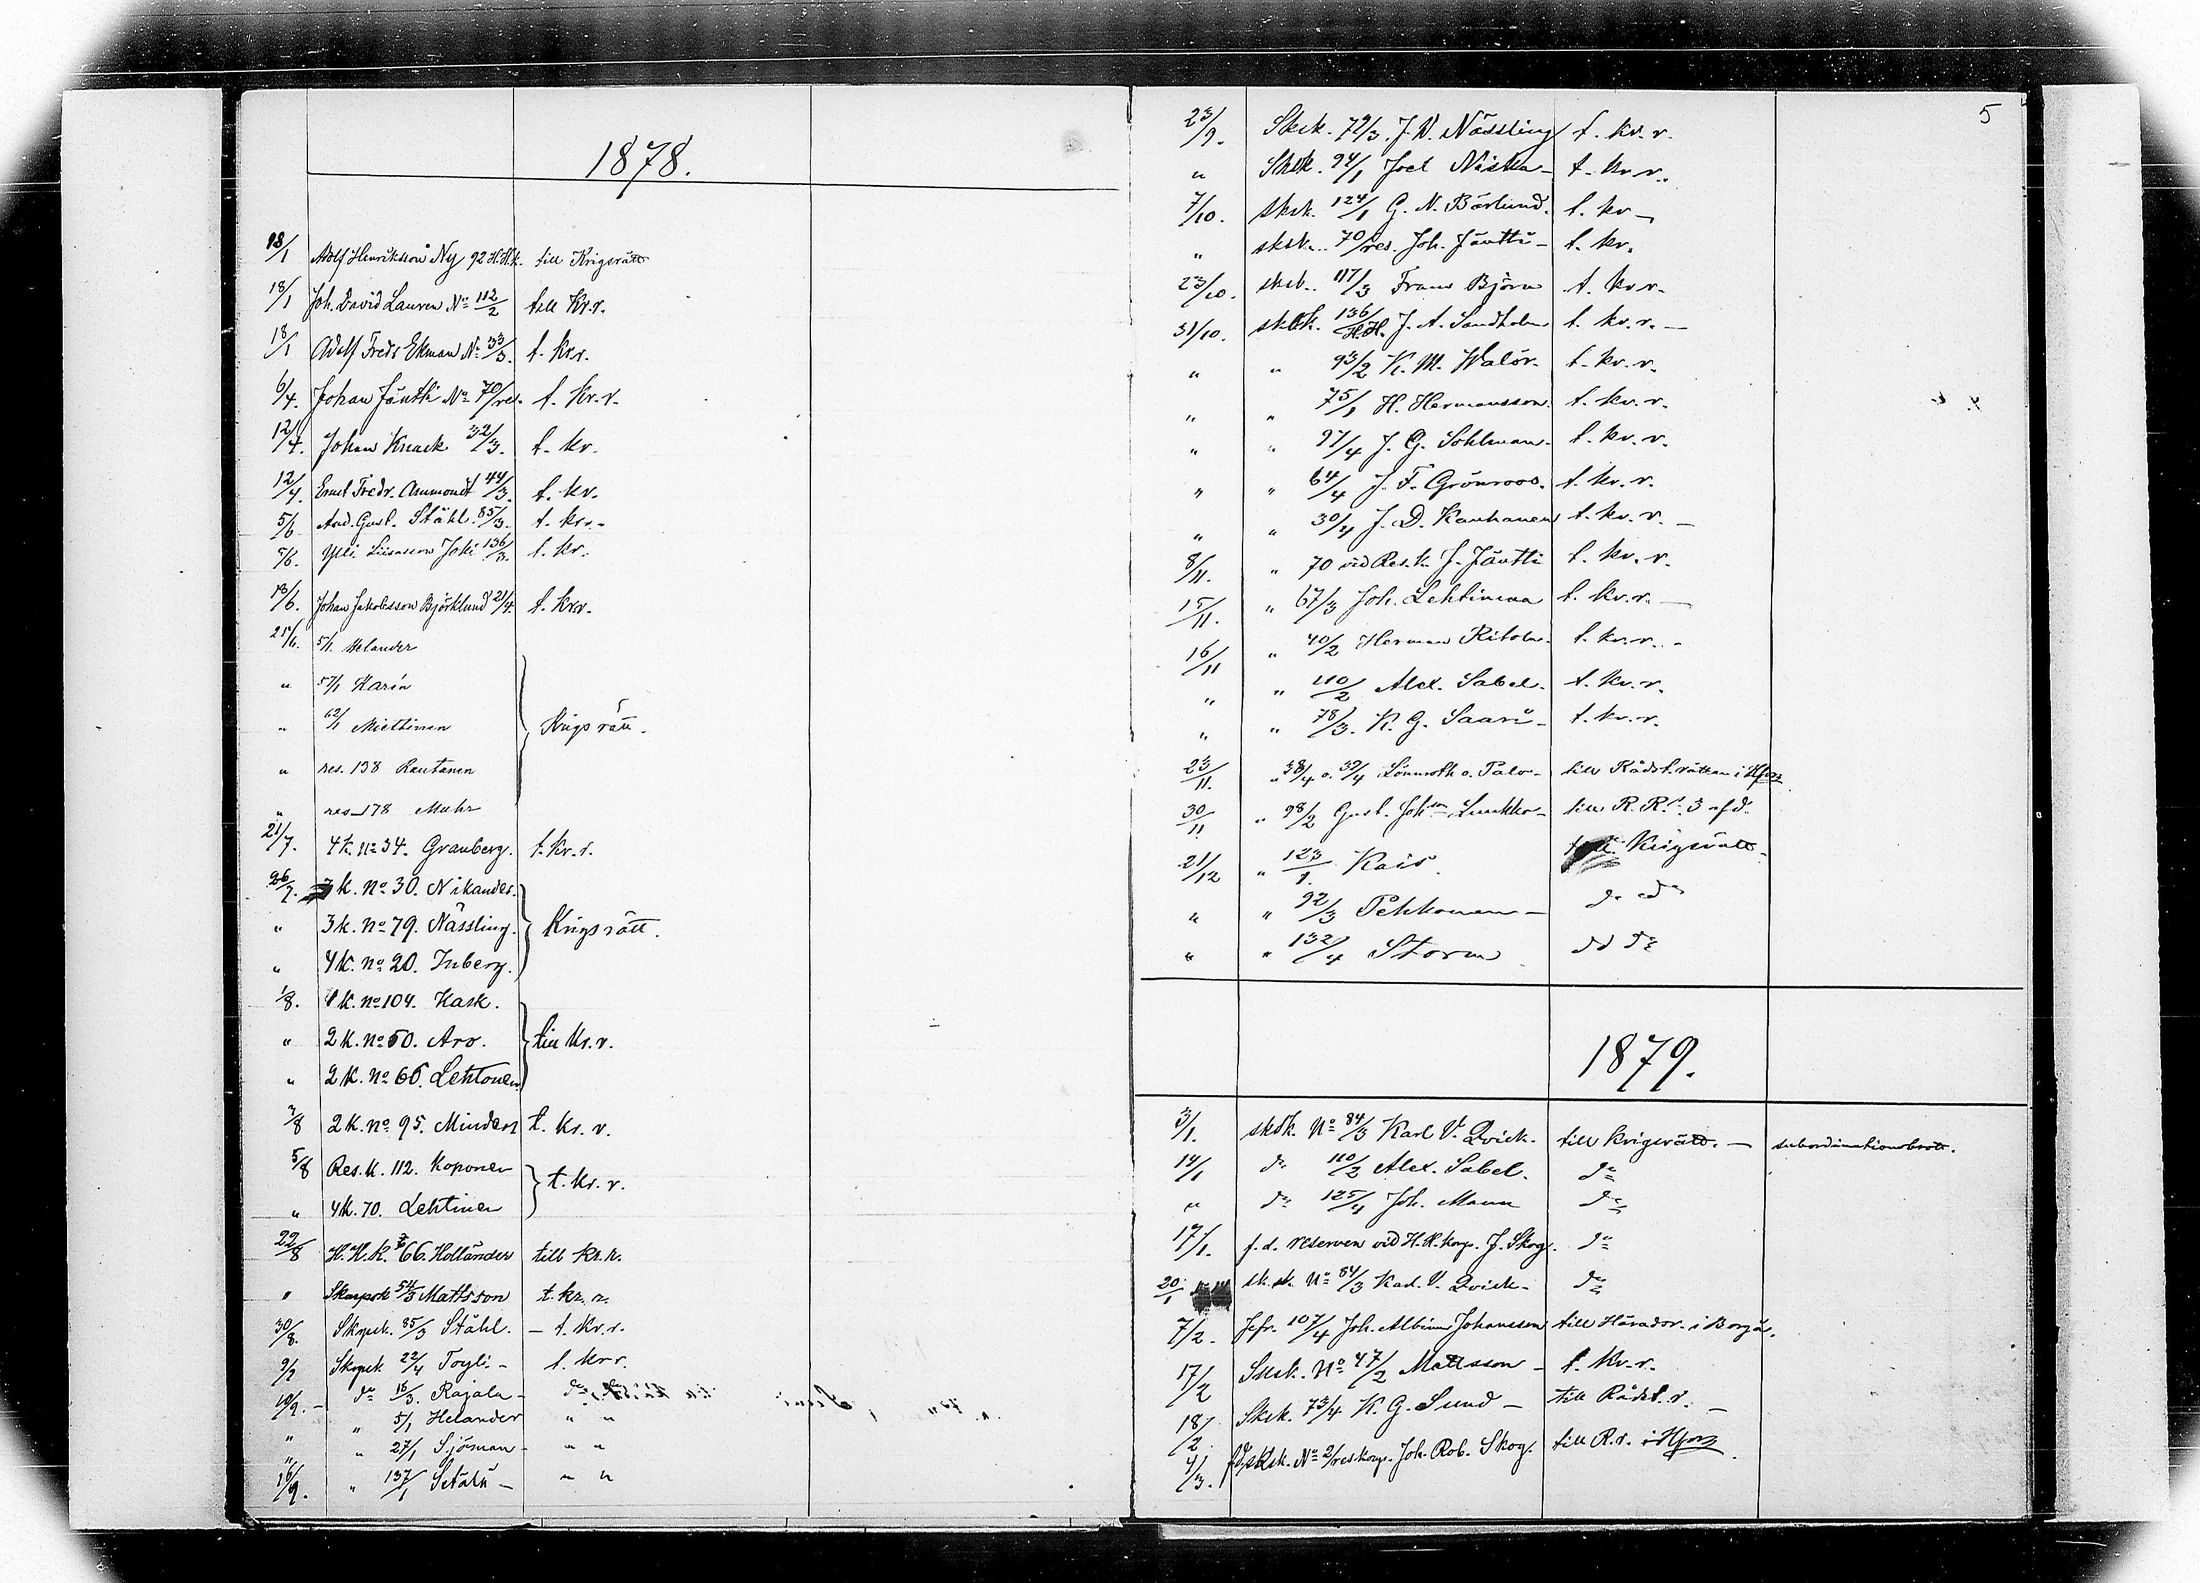 1878.
18/1 Adolf Henriksson Ny 92 H.H.k. till Krigsrätt
18/1 Joh. David Lauren No 112/2 till Kr.r.
18/1 Adolf Fredr Ekman No 33/3. t. kr.
6/4. Johan Jäntti No 70/res. t. Kr.r.
12/4. Johan Knack 32/3. t. kr.
12/4. Ernst Fredr. Ammondt 44/3. t. kr.
5/6 And. Gust. Ståhl. 85/3. t. kr.
5/6. Yli Joki 136/3. t. kr.
13/6. Johan Jakobsson Björklund 21/4. t. kr.
25/6. 5/1. Helander
" 57/1 Karin
" 62/1 Miettinen Krigsrätt.
" res. 138 Rautanen
" res. 178 Muhr
21/7. 4k. no 34. Granberg. t. Kr.r.
26/7. k. No 30. Nikander.
" 3k. No 79. Nässling. Krigsrätt.
" 4k. no 20. Inberg.
1/8. k. no 104. Kask.
" 2k. No 50. Aro. till Kr.r.
" 2k. No 66. Lehtonen
3/8 2k. no 95. Minders t. kr. r.
5/8 Res. k. 112. Koponen t. kr. r.
" 4k. 70. Lehtinen
22/8 H.H.k. 66. Holländer till kr.r.
" Skarpsk 54/3 Mattsson t. kr. r.
30/8. Skpsk. 85/3 Ståhl. – t. kr.r.
9/9 Skpsk 22/4 Toyli – t. kr r.
10/9. – do 18/3. Rajala – do do
" " 5/1 Helander " "
" " 27/1 Sjöman – " "
16/9. " 137/1 Setälä – " "
5
23/9. Sksk. 79/3. J. V. Nässling t. kr. r.
" Sksk. 94/1 Joel Niska – t. kr r.
7/10. sksk. 124/1 G. N. Bärlund. t. kr –
" sksk. 70/res. Joh. Jäntti – t. kr.
23/10. sksk. 117/3 Frans Björn t. kr r.
31/10. sksk. 136/H.H. J. A. Sandholm t. kr. r. –
" " 93/2 K. M. Walör. t. kr. r.
" " 75/1 H. Hermansson. t. kr. r.
" " 97/4 J. G. Sohlman. t. kr. r.
" " 64/4 J. F. Grönroos. t. kr. r.
" " 30/4 J. D. Kauhanen t. kr. r. –
8/11. " 70 vid Res. k. J. Jäntti t. kr. r.
15/11. " 67/3 Joh. Lehtimaa t. kr. r. –
16/11 " 40/2 Herman Ritola. t. kr. r. –
" " 110/2 Alex. Sabel. t. kr. r.
" " 78/3. K. G. Saari – t. kr. r.
23/11. " 38/4 o. 39/4 Lönnroth o. Palo – till Rådst. rätten i Hfors
30/11. " 98/2 Gust. Johson Luukko – till R. R. 3 afd.
21/12 " 123/1. Kais. till Krigsrätt –
" " 92/3 Pekkonen – do do
" " 132/4 Storm do do
1879.
3/1. sksk. No 84/3 Karl V. Qvick. till krigsrätt. – subordinationsbrott.
14/1 do 110/2 Alex. Sabel. do
" do 125/4 Joh. Mann do
17/1. f. d. reserven vid H. R. komp. J. Skog. do
20/1 sk. sk. No 84/3 Karl. V. Qvick – do
7/2. 107/4 Joh. Albin Johansson till Häradsr. i Borgå.
17/2 Sksk. No 47/2 Mattsson – t. kr. r.
18/2. Sksk. 73/4 K. G. Sund – till Rådst. r. –
4/3. fd sksk. No 2/reskomp. Joh. Rob. Skog. till R. r. i Hfors